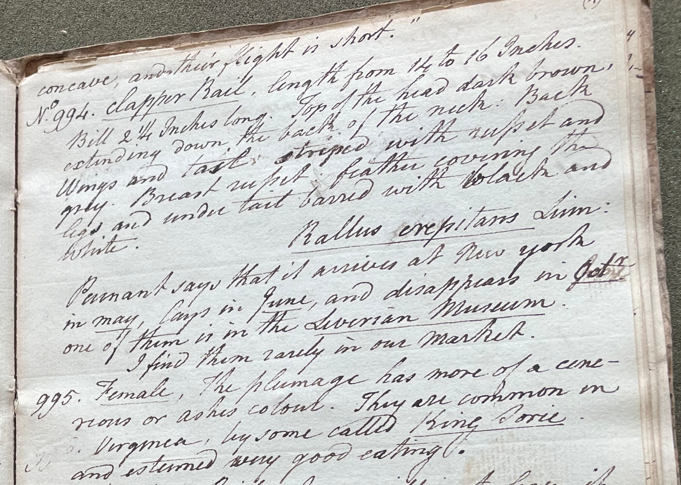 concave, and their flight is short."
No. 994. Clapper Rail, length from 14 to 16 Inches.
Bill 2¼ Inches long. Top of the head dark brown,
extending down the back of the neck. Back
Wings and tail striped with russet and
grey. Breast russet. feather covering the
legs and under tail barred with black and
white.
Rallus crepitans Linn:
Pennant says that it arrives at New york
in may, lays in June, and disappears in Octr.
one of them is in the Leverian Museum.
I find them rarely in our market.
995. Female, The plumage has more of a cene-
rious or ashes colour. They are common in
Virginea, by some called King Soree
and estemed very good eating.